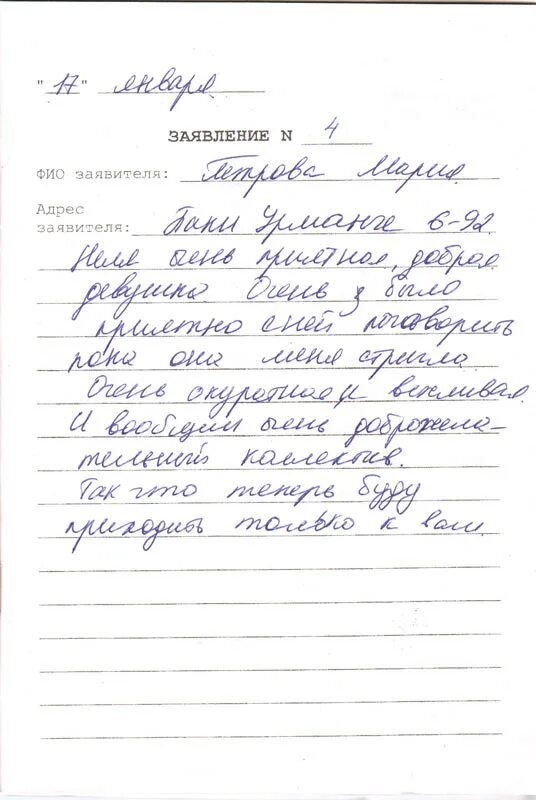 "17" января
ЗАЯВЛЕНИЕ N 4
ФИО заявителя: Петрова Мария
Адрес
заявителя: Таки Урманче 6-92
Неля очень приятная, добрая
девушка Очень было
приятно с ней поговорить
пока она меня стригла
Очень окуратная и вежливая.
И вообщим очень доброжела-
тельный коллектив.
Так что теперь буду
приходить только к вам.